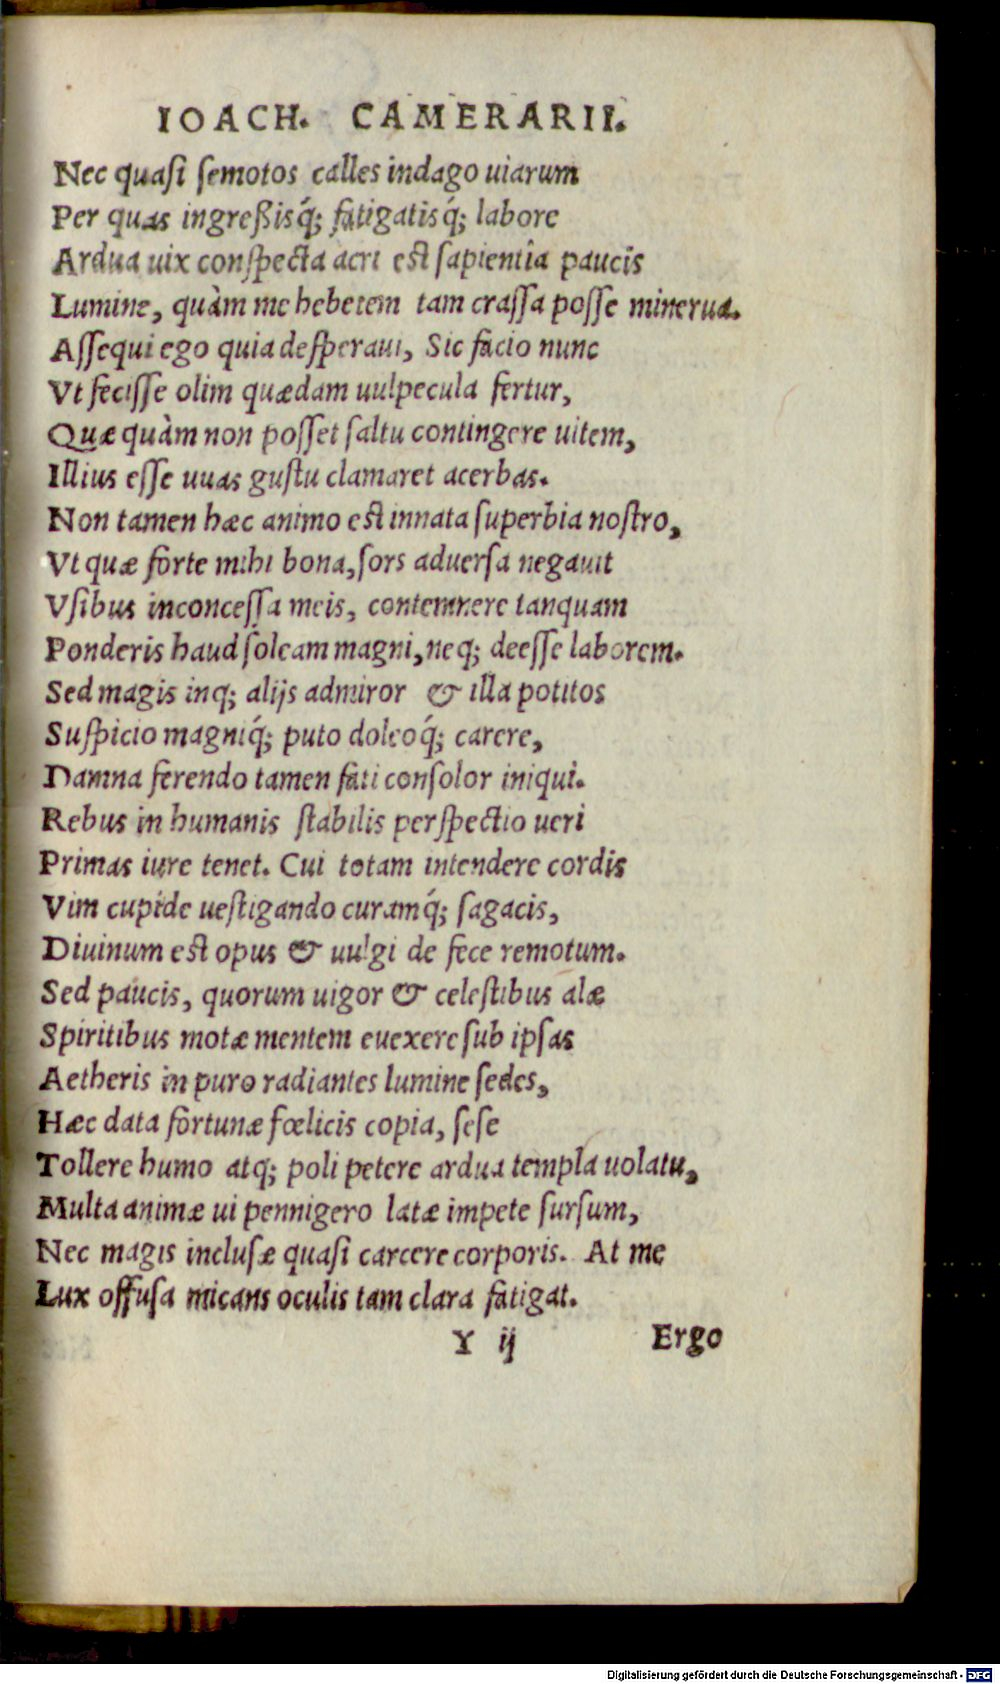 IOACH. CAMERARII.
Nec quasi semotos calles indago uiarum
Per quas ingreßisq́; fatigatisq́; labore
Ardua uix conspecta acri est sapientia paucis
Lumine, quàm me hebetem tam crassa posse minerua.
Assequi ego quia desperaui, Sic facio nunc
Vt fecisse olim quædam uulpecula fertur,
Quæ quàm non posset saltu contingere uitem,
Illius esse uuas gustu clamaret acerbas.
Non tamen hæc animo est innata superbia nostro,
Vt quæ forte mihi bona, sors aduersa negauit
Vsibus inconcessa meis, contemnere tanquam
Ponderis haud soleam magni, neq; deesse laborem.
Sed magis inq; alijs admiror & illa potitos
Suspicio magniq́; puto doleoq́; carere,
Damna ferendo tamen fati consolor iniqui.
Rebus in humanis stabilis perspectio ueri
Primas iure tenet. Cui totam intendere cordis
Vim cupide uestigando curamq́; sagacis,
Diuinum est opus & uulgi de fece remotum.
Sed paucis, quorum uigor & celestibus alæ
Spiritibus motæ mentem euexere sub ipsas
Aetheris in puro radiantes lumine sedes,
Hæc data fortunæ fœlicis copia, sese
Tollere humo atq; poli petere ardua templa uolatu,
Multa animæ ui pennigero latæ impete sursum,
Nec magis inclusæ quasi carcere corporis. At me
Lux offusa micans oculis tam clara fatigat.
Y ij Ergo
Digitalisierung gefördert durch die Deutsche Forschungsgemeinschaft - DFG